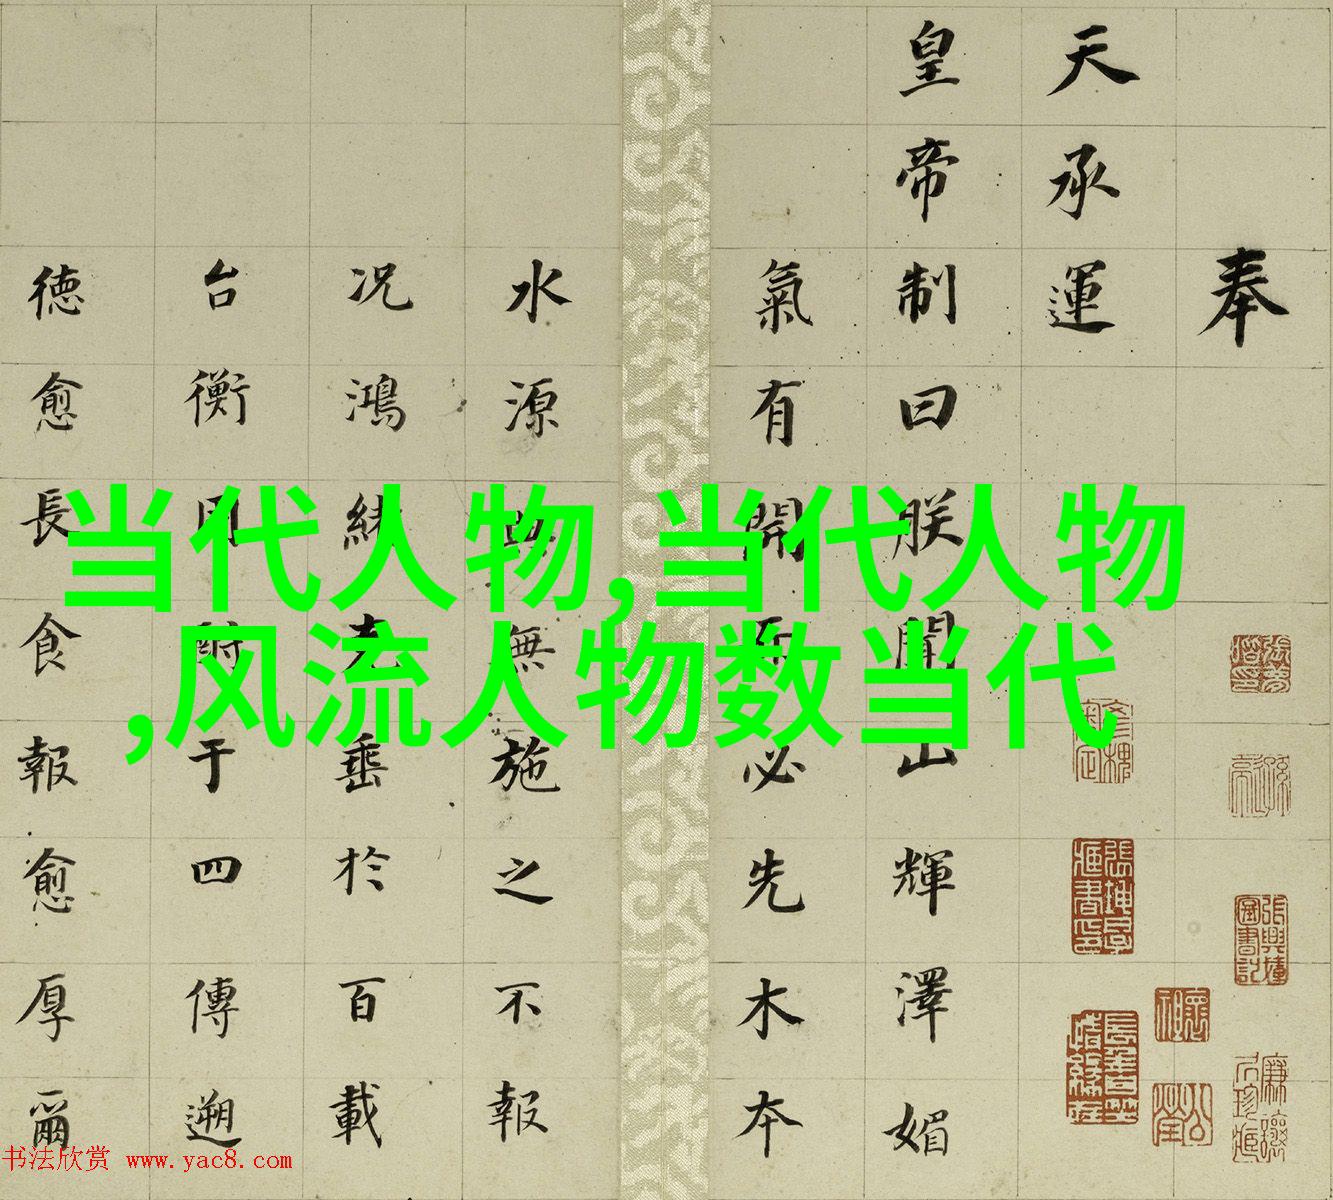 奉
天承運
皇帝制曰朕聞山輝澤媚
氣有開必先木本
水源無施之不報
况鴻緒垂於百載
台衡于四傳遡
德愈長食報愈厚爾
当代人物,当代人物
,风流人物数当代
书法欣赏 www.yac8.com